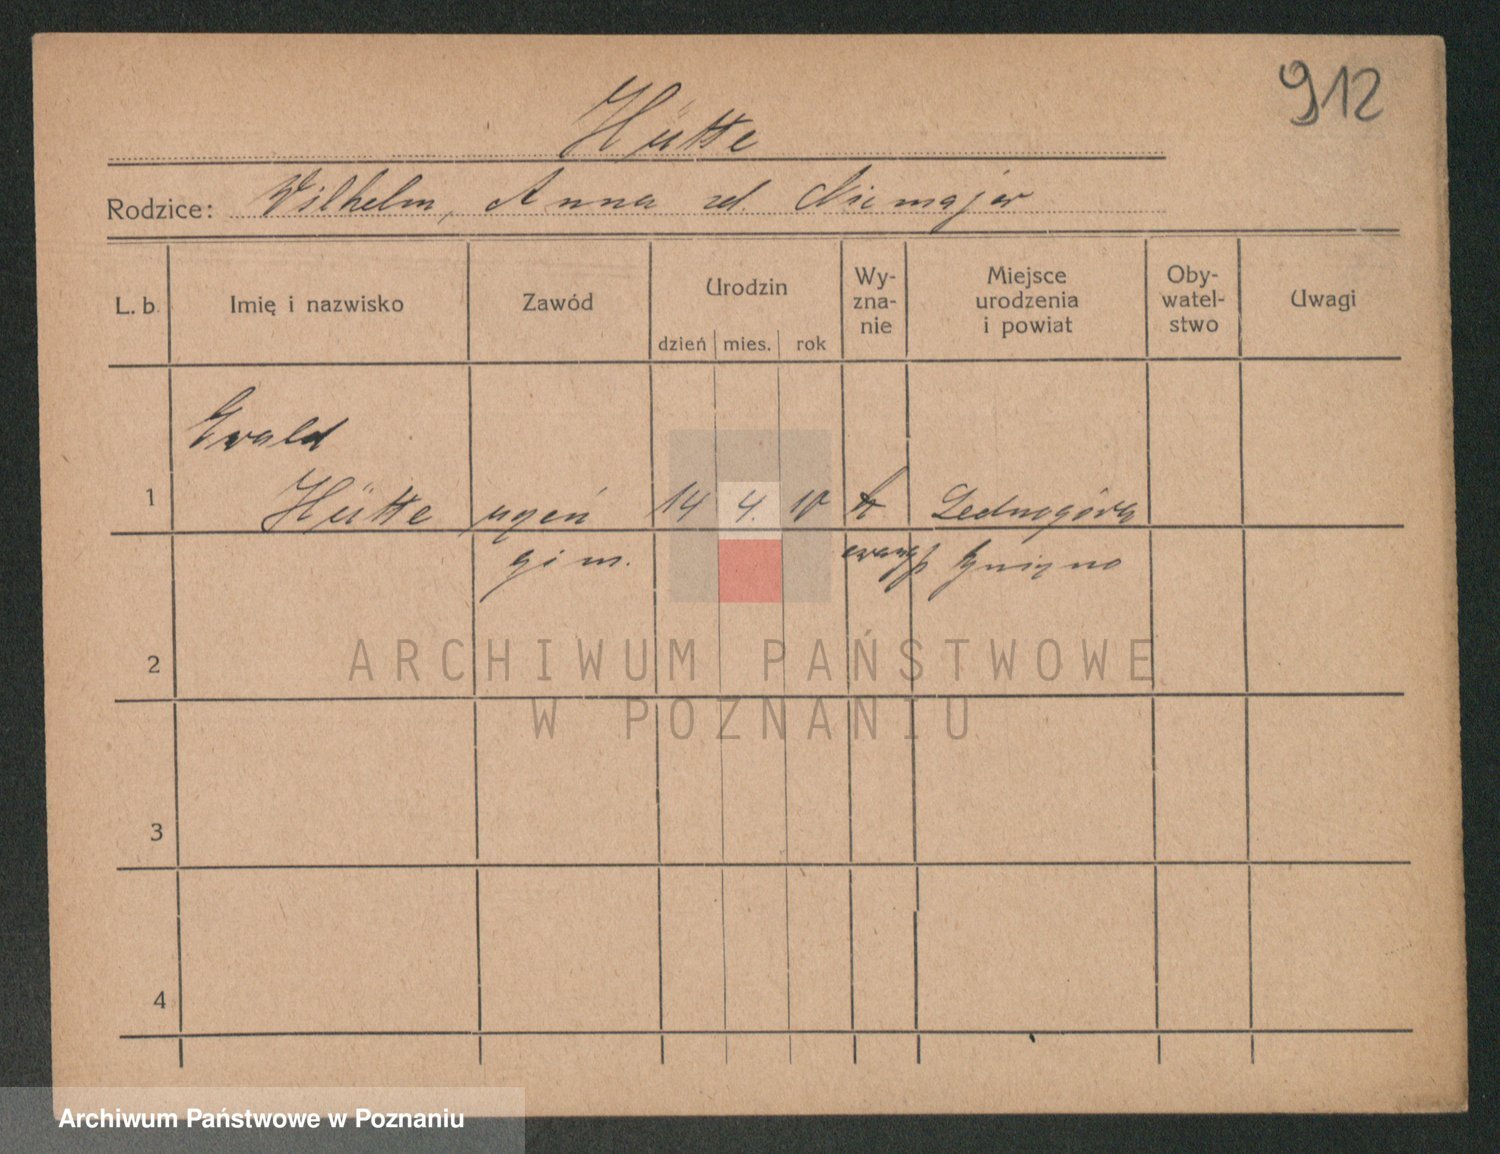 912
Hütte
Rodzice: Wilhelm, Anna zd. Niemajer
L. b. Imię i nazwisko Zawód Urodzin dzień mies. rok Wy-zna-nie Miejsce urodzenia i powiat Oby-watel-stwo Uwagi
Ewald
1 Hütte uczeń 14 4. 10 Lednogóra
gim. ewang Gniezno
2
3
4
ARCHIWUM PAŃSTWOWE
W POZNANIU
Archiwum Państwowe w Poznaniu